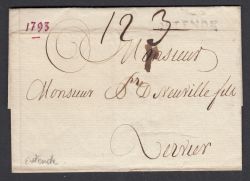 1793
123
OSTENDE
Monsieur
Monsieur D Neuville fils
Vervier
Ostende